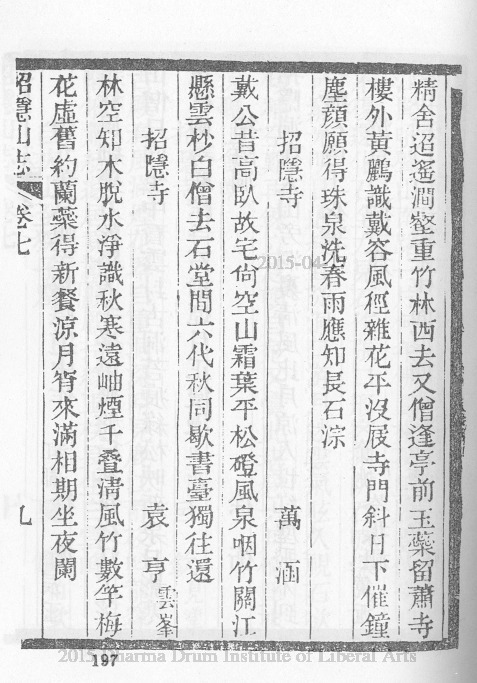 精舍迢遙澗壑重竹林西去又僧逢亭前玉蘂留蕭寺
樓外黃鸝識戴容風徑雜花平沒屐寺門斜日下催鐘
塵顏願得珠泉洗春雨應知長石淙
招隱寺　萬涵
戴公昔高臥故宅尙空山霜葉平松磴風泉咽竹關江
懸雲杪白僧去石堂間六代秋同歇書臺獨往還
招隱寺　袁亨雲峯
林空知木脫水淨識秋寒遠岫煙千叠淸風竹數竿梅
花虛舊約蘭蘂得新餐涼月宵來滿相期坐夜闌
招隱山志　卷七　九
2015-04
197
2015 Dharma Drum Institute of Liberal Arts